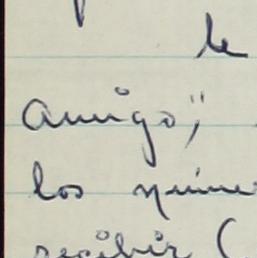 le
amigo",
los
recibir (